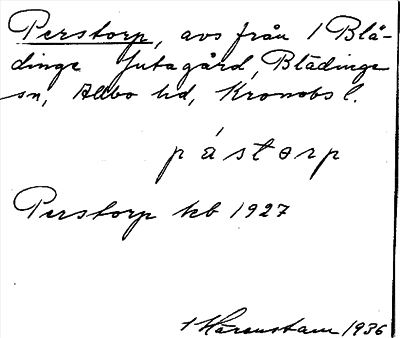 Perstorp, avs från 1 Blä-
dinge Jutagård, Blädinge
sn, Allbo hd, Kronobs l.
pástorp
Perstorp kb 1927
Harenstam 1936